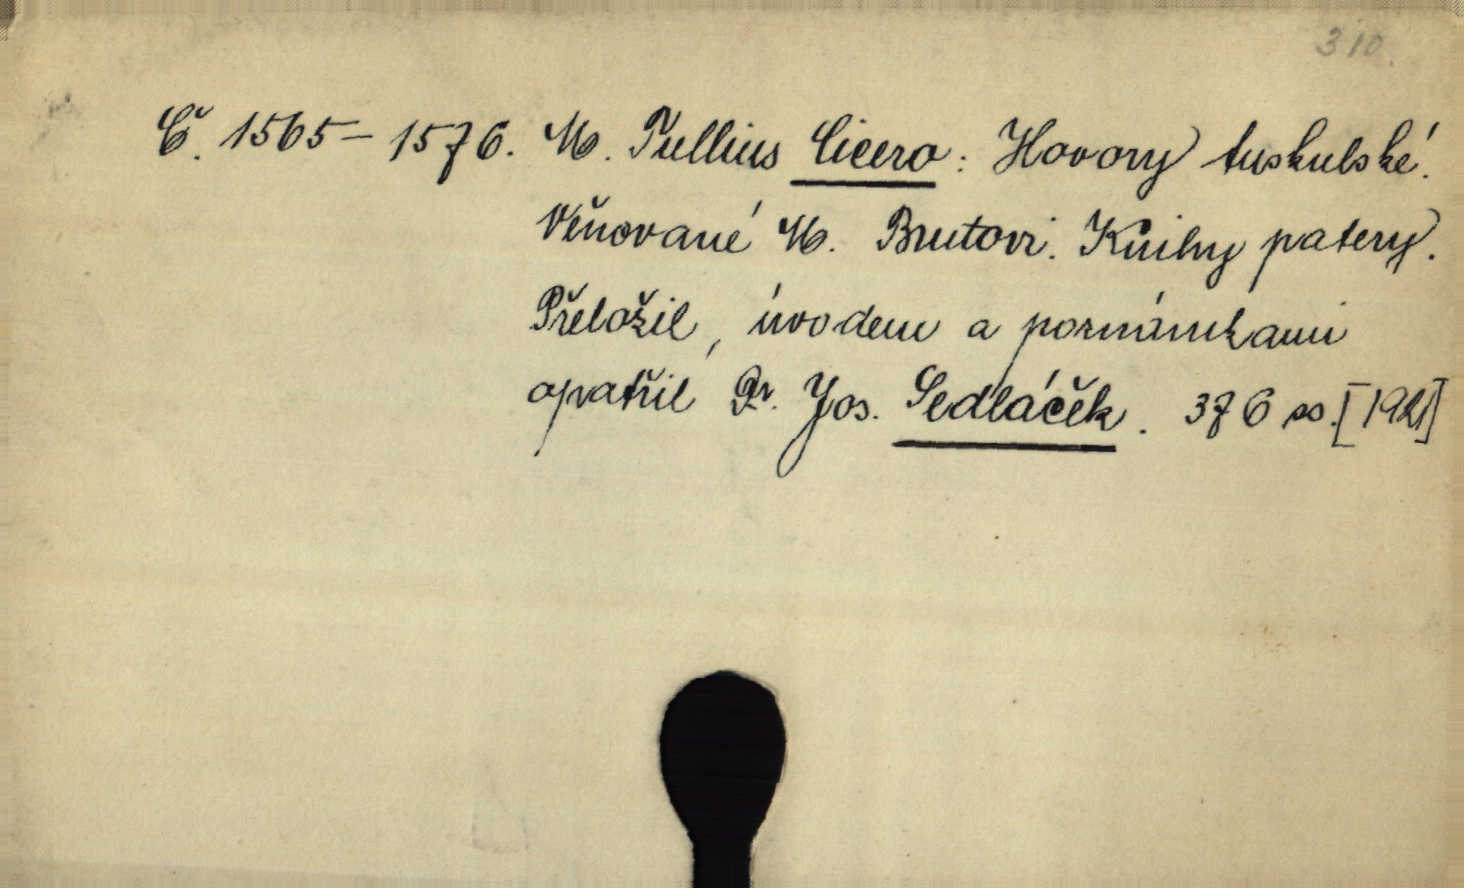 310
Č. 1565-1576. M. Tullius Cicero: Hovory tuskulské.
Věnované M. Brutovi. Knihy patery.
Přeložil, úvodem a poznámkami
opatřil Dr. Jos. Sedláček. 376 ss. [1921]